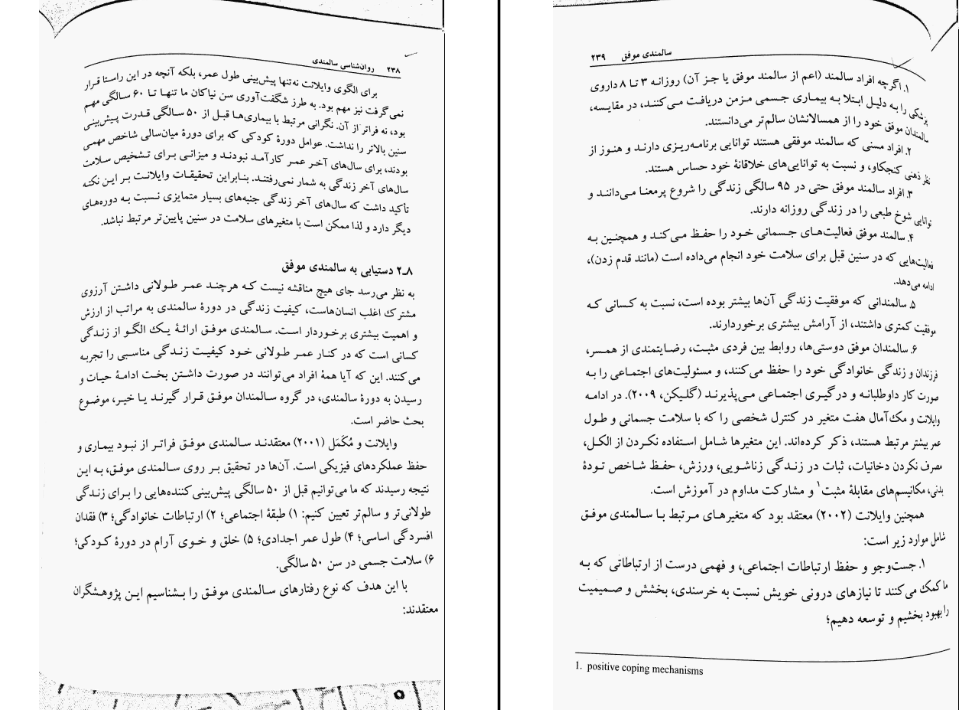 ۲۳۸ روان‌شناسی سالمندی
برای الگوی وایلانت نه‌تنها پیش‌بینی طول عمر، بلکه آنچه در این راستا قرار
نمی‌گرفت نیز مهم بود. به طرز شگفت‌آوری سن نیاکان ما تنها تا ۶۰ سالگی مهم
بود، نه فراتر از آن. نگرانی مرتبط با بیماری‌ها قبل از ۵۰ سالگی قدرت پیش‌بینی
سنین بالاتر را نداشت. عوامل دورهٔ کودکی که برای دورهٔ میان‌سالی شاخص مهمی
بودند، برای سال‌های آخر عمر کارآمد نبودند و میزانی برای تشخیص سلامت
سال‌های آخر زندگی به شمار نمی‌رفتند. بنابراین تحقیقات وایلانت بر این نکته
تأکید داشت که سال‌های آخر زندگی جنبه‌های بسیار متمایزی نسبت به دوره‌های
دیگر دارد و لذا ممکن است با متغیرهای سلامت در سنین پایین‌تر مرتبط نباشد.
۸ـ۲ دستیابی به سالمندی موفق
به نظر می‌رسد جای هیچ مناقشه نیست که هرچند عمر طولانی داشتن آرزوی
مشترک اغلب انسان‌هاست، کیفیت زندگی در دورهٔ سالمندی به مراتب از ارزش
و اهمیت بیشتری برخوردار است. سالمندی موفق ارائهٔ یک الگو از زندگی
کسانی است که در کنار عمر طولانی خود کیفیت زندگی مناسبی را تجربه
می‌کنند. این که آیا همهٔ افراد می‌توانند در صورت داشتن بخت ادامهٔ حیات و
رسیدن به دورهٔ سالمندی، در گروه سالمندان موفق قرار گیرند یا خیر، موضوع
بحث حاضر است.
وایلانت و مُکَمَل (۲۰۰۱) معتقدند سالمندی موفق فراتر از نبود بیماری و
حفظ عملکردهای فیزیکی است. آن‌ها در تحقیق بر روی سالمندی موفق، به این
نتیجه رسیدند که ما می‌توانیم قبل از ۵۰ سالگی پیش‌بینی کننده‌هایی را برای زندگی
طولانی‌تر و سالم‌تر تعیین کنیم: ۱) طبقهٔ اجتماعی؛ ۲) ارتباطات خانوادگی؛ ۳) فقدان
افسردگی اساسی؛ ۴) طول عمر اجدادی؛ ۵) خلق و خوی آرام در دورهٔ کودکی؛
۶) سلامت جسمی در سن ۵۰ سالگی.
با این هدف که نوع رفتارهای سالمندی موفق را بشناسیم این پژوهشگران
معتقدند:
سالمندی موفق ۲۳۹
۱. اگرچه افراد سالمند (اعم از سالمند موفق یا جز آن) روزانه ۳ تا ۸ داروی
پزشکی را به دلیل ابتلا به بیماری جسمی مزمن دریافت می‌کنند، در مقایسه،
سالمندان موفق خود را از همسالانشان سالم‌تر می‌دانستند.
۲. افراد مسنی که سالمند موفقی هستند توانایی برنامه‌ریزی دارند و هنوز از
نظر ذهنی کنجکاو، و نسبت به توانایی‌های خلاقانهٔ خود حساس هستند.
۳. افراد سالمند موفق حتی در ۹۵ سالگی زندگی را شروع پرمعنا می‌دانند و
توانایی شوخ طبعی را در زندگی روزانه دارند.
۴. سالمند موفق فعالیت‌های جسمانی خود را حفظ می‌کند و همچنین به
فعالیت‌هایی که در سنین قبل برای سلامت خود انجام می‌داده است (مانند قدم زدن)،
ادامه می‌دهد.
۵. سالمندانی که موفقیت زندگی آن‌ها بیشتر بوده است، نسبت به کسانی که
موفقیت کمتری داشتند، از آرامش بیشتری برخوردارند.
۶. سالمندان موفق دوستی‌ها، روابط بین فردی مثبت، رضایتمندی از همسر،
فرزندان و زندگی خانوادگی خود را حفظ می‌کنند، و مسئولیت‌های اجتماعی را به
صورت کار داوطلبانه و درگیری اجتماعی می‌پذیرند (گلیکن، ۲۰۰۹). در ادامه
وایلانت و مک‌آمال هفت متغیر در کنترل شخصی را که با سلامت جسمانی و طول
عمر بیشتر مرتبط هستند، ذکر کرده‌اند. این متغیرها شامل استفاده نکردن از الکل،
مصرف نکردن دخانیات، ثبات در زندگی زناشویی، ورزش، حفظ شاخص تودهٔ
بدنی، مکانیسم‌های مقابلهٔ مثبت۱ و مشارکت مداوم در آموزش است.
همچنین وایلانت (۲۰۰۲) معتقد بود که متغیرهای مرتبط با سالمندی موفق
شامل موارد زیر است:
۱. جست‌وجو و حفظ ارتباطات اجتماعی، و فهمی درست از ارتباطاتی که به
ما کمک می‌کنند تا نیازهای درونی خویش نسبت به خرسندی، بخشش و صمیمیت
را بهبود بخشیم و توسعه دهیم؛
1. positive coping mechanisms